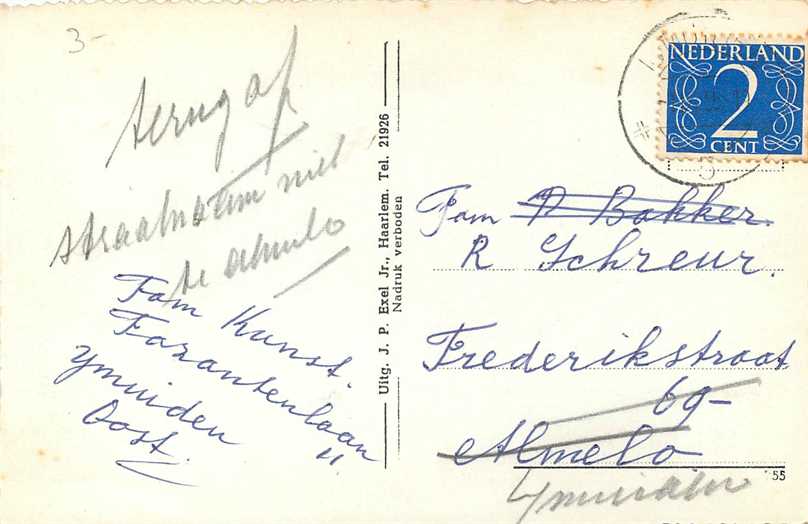 3-
terug af
straatnaam niet
te almelo
Fam Kunst.
Fazantenlaan
ymuiden 11
Oost.
Uitg. J. P. Exel Jr., Haarlem. Tel. 21926
Nadruk verboden
NEDERLAND
2
CENT
Fam P Bakker.
R Schreur.
Frederikstraat
69-
Almelo
55
Ymuiden